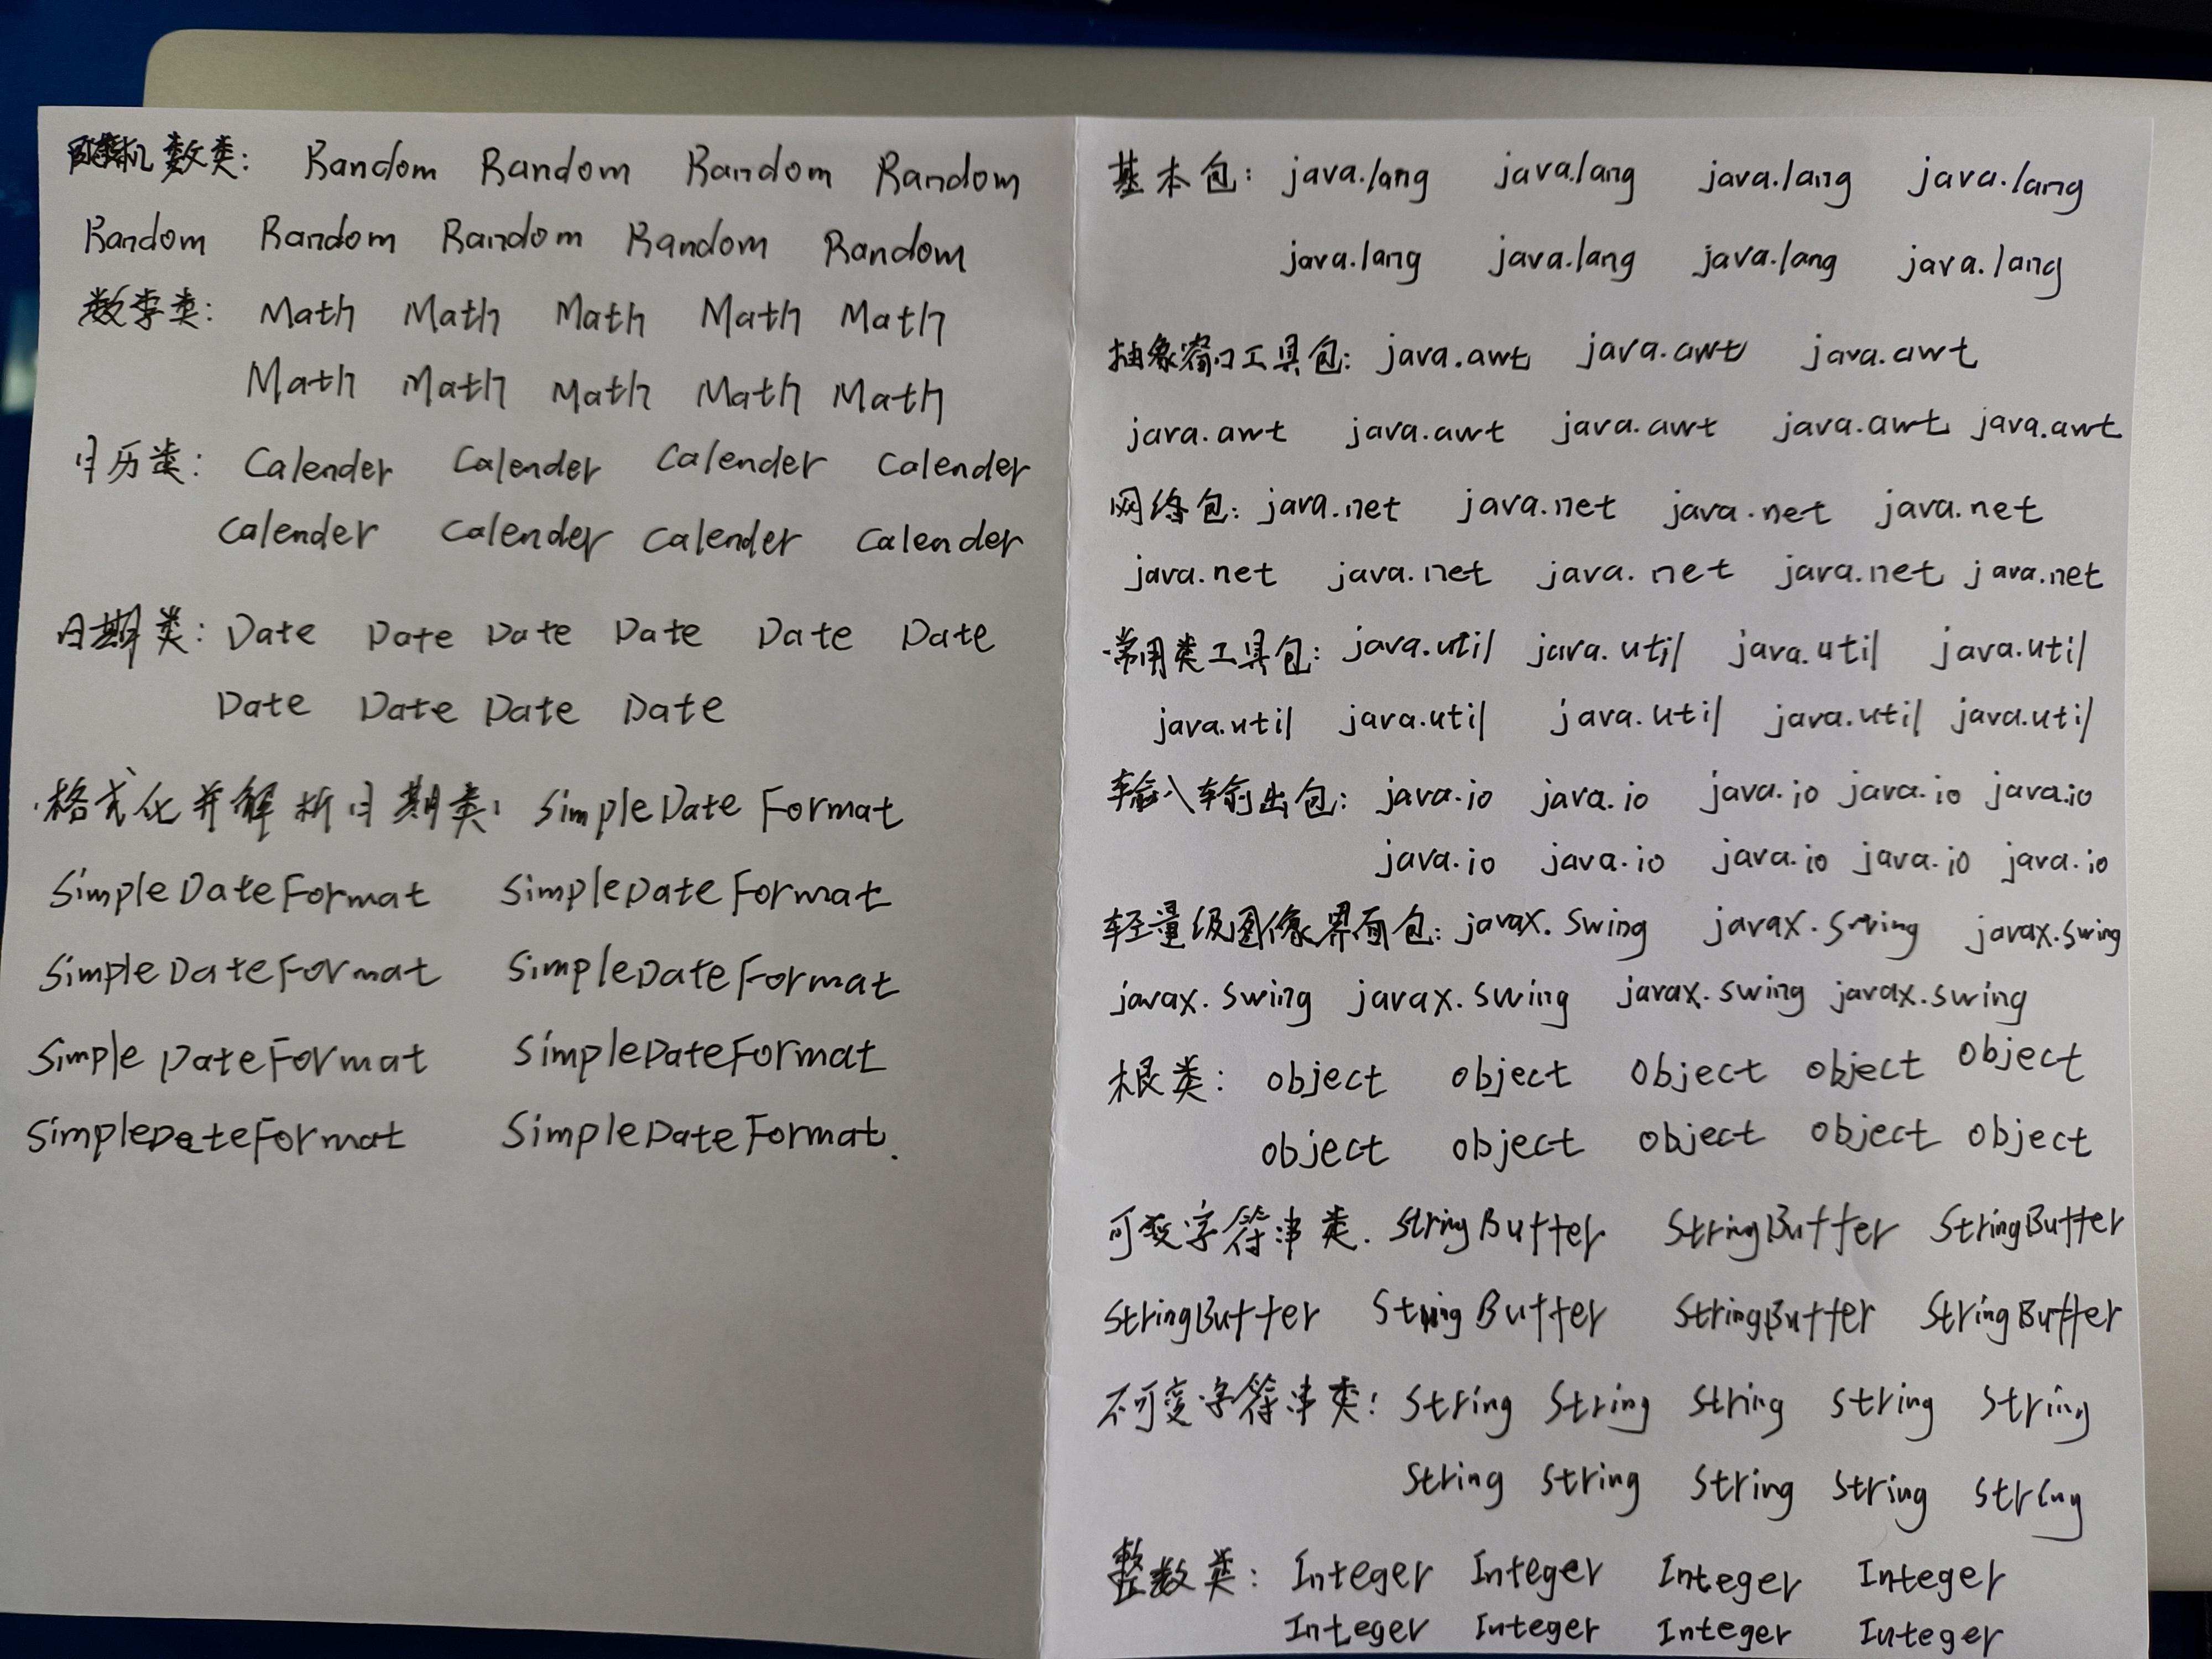 随机数类: Random Random Random Random
Random Random Random Random Random
数学类: Math Math Math Math Math
Math Math Math Math Math
日历类: Calender Calender Calender Calender
Calender Calender Calender Calender
日期类: Date Date Date Date Date Date
Date Date Date Date
格式化并解析日期类: SimpleDateFormat
SimpleDateFormat SimpleDateFormat
SimpleDateFormat SimpleDateFormat
SimpleDateFormat SimpleDateFormat
SimpleDateFormat SimpleDateFormat.
基本包: java.lang java.lang java.lang java.lang
java.lang java.lang java.lang java.lang
抽象窗口工具包: java.awt java.awt java.awt
java.awt java.awt java.awt java.awt java.awt
网络包: java.net java.net java.net java.net
java.net java.net java.net java.net java.net
常用类工具包: java.util java.util java.util java.util
java.util java.util java.util java.util java.util
输入输出包: java.io java.io java.io java.io java.io
java.io java.io java.io java.io java.io
轻量级图像界面包: javax.swing javax.swing javax.swing
javax.swing javax.swing javax.swing javax.swing
根类: object object object object object
object object object object object
可变字符串类. StringBuffer StringBuffer StringBuffer
StringBuffer StringBuffer StringBuffer StringBuffer
不可变字符串类: String String String String String
String String String String String
整数类: Integer Integer Integer Integer
Integer Integer Integer Integer